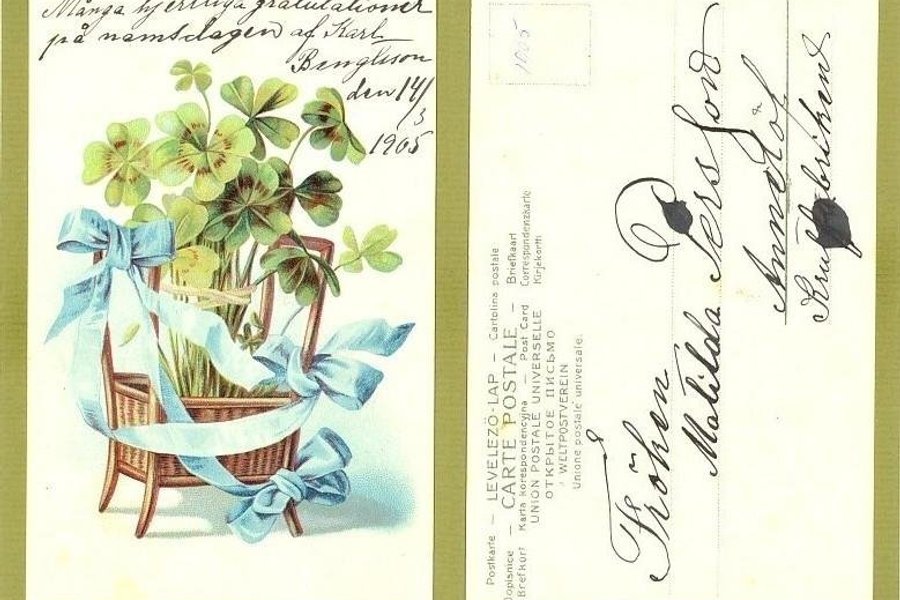 Många hjertliga gratulationer
på namsdagen af Karl
Bengtsson
den 14/3
1905
1905
Postkarte — LEVELEZÖ-LAP — Cartolina postale
Dopisnice — CARTE POSTALE — Briefkaart
Brefkort Karta korespondencyjna — Post Card Correspondenzkarte
UNION POSTALE UNIVERSELLE Kirjekortti
ОТКРЫТОЕ ПИСЬМО
WELTPOSTVEREIN
Unione postale universale.
Fröken
Matilda Persson